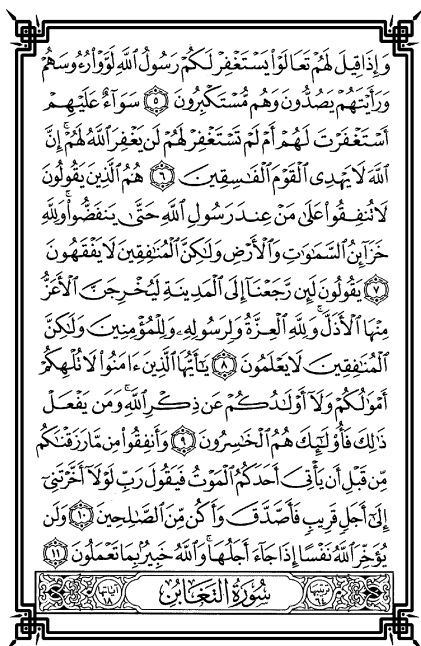 وَإِذَا قِيلَ لَهُمْ تَعَالَوْا۟ يَسْتَغْفِرْ لَكُمْ رَسُولُ ٱللَّهِ لَوَّوْا۟ رُءُوسَهُمْ
وَرَأَيْتَهُمْ يَصُدُّونَ وَهُم مُّسْتَكْبِرُونَ ٥ سَوَآءٌ عَلَيْهِمْ
أَسْتَغْفَرْتَ لَهُمْ أَمْ لَمْ تَسْتَغْفِرْ لَهُمْ لَن يَغْفِرَ ٱللَّهُ لَهُمْ ۚ إِنَّ
ٱللَّهَ لَا يَهْدِى ٱلْقَوْمَ ٱلْفَٰسِقِينَ ٦ هُمُ ٱلَّذِينَ يَقُولُونَ
لَا تُنفِقُوا۟ عَلَىٰ مَنْ عِندَ رَسُولِ ٱللَّهِ حَتَّىٰ يَنفَضُّوا۟ ۗ وَلِلَّهِ
خَزَآئِنُ ٱلسَّمَٰوَٰتِ وَٱلْأَرْضِ وَلَٰكِنَّ ٱلْمُنَٰفِقِينَ لَا يَفْقَهُونَ
٧ يَقُولُونَ لَئِن رَّجَعْنَآ إِلَى ٱلْمَدِينَةِ لَيُخْرِجَنَّ ٱلْأَعَزُّ
مِنْهَا ٱلْأَذَلَّ ۚ وَلِلَّهِ ٱلْعِزَّةُ وَلِرَسُولِهِۦ وَلِلْمُؤْمِنِينَ وَلَٰكِنَّ
ٱلْمُنَٰفِقِينَ لَا يَعْلَمُونَ ٨ يَٰٓأَيُّهَا ٱلَّذِينَ ءَامَنُوا۟ لَا تُلْهِكُمْ
أَمْوَٰلُكُمْ وَلَآ أَوْلَٰدُكُمْ عَن ذِكْرِ ٱللَّهِ ۚ وَمَن يَفْعَلْ
ذَٰلِكَ فَأُو۟لَٰٓئِكَ هُمُ ٱلْخَٰسِرُونَ ٩ وَأَنفِقُوا۟ مِن مَّا رَزَقْنَٰكُم
مِّن قَبْلِ أَن يَأْتِىَ أَحَدَكُمُ ٱلْمَوْتُ فَيَقُولَ رَبِّ لَوْلَآ أَخَّرْتَنِىٓ
إِلَىٰٓ أَجَلٍ قَرِيبٍ فَأَصَّدَّقَ وَأَكُن مِّنَ ٱلصَّٰلِحِينَ ١٠ وَلَن
يُؤَخِّرَ ٱللَّهُ نَفْسًا إِذَا جَآءَ أَجَلُهَا ۚ وَٱللَّهُ خَبِيرٌۢ بِمَا تَعْمَلُونَ ١١
ترتيبها ٦٤ سُورَةُ التَّغَابُنِ آياتها ١٨